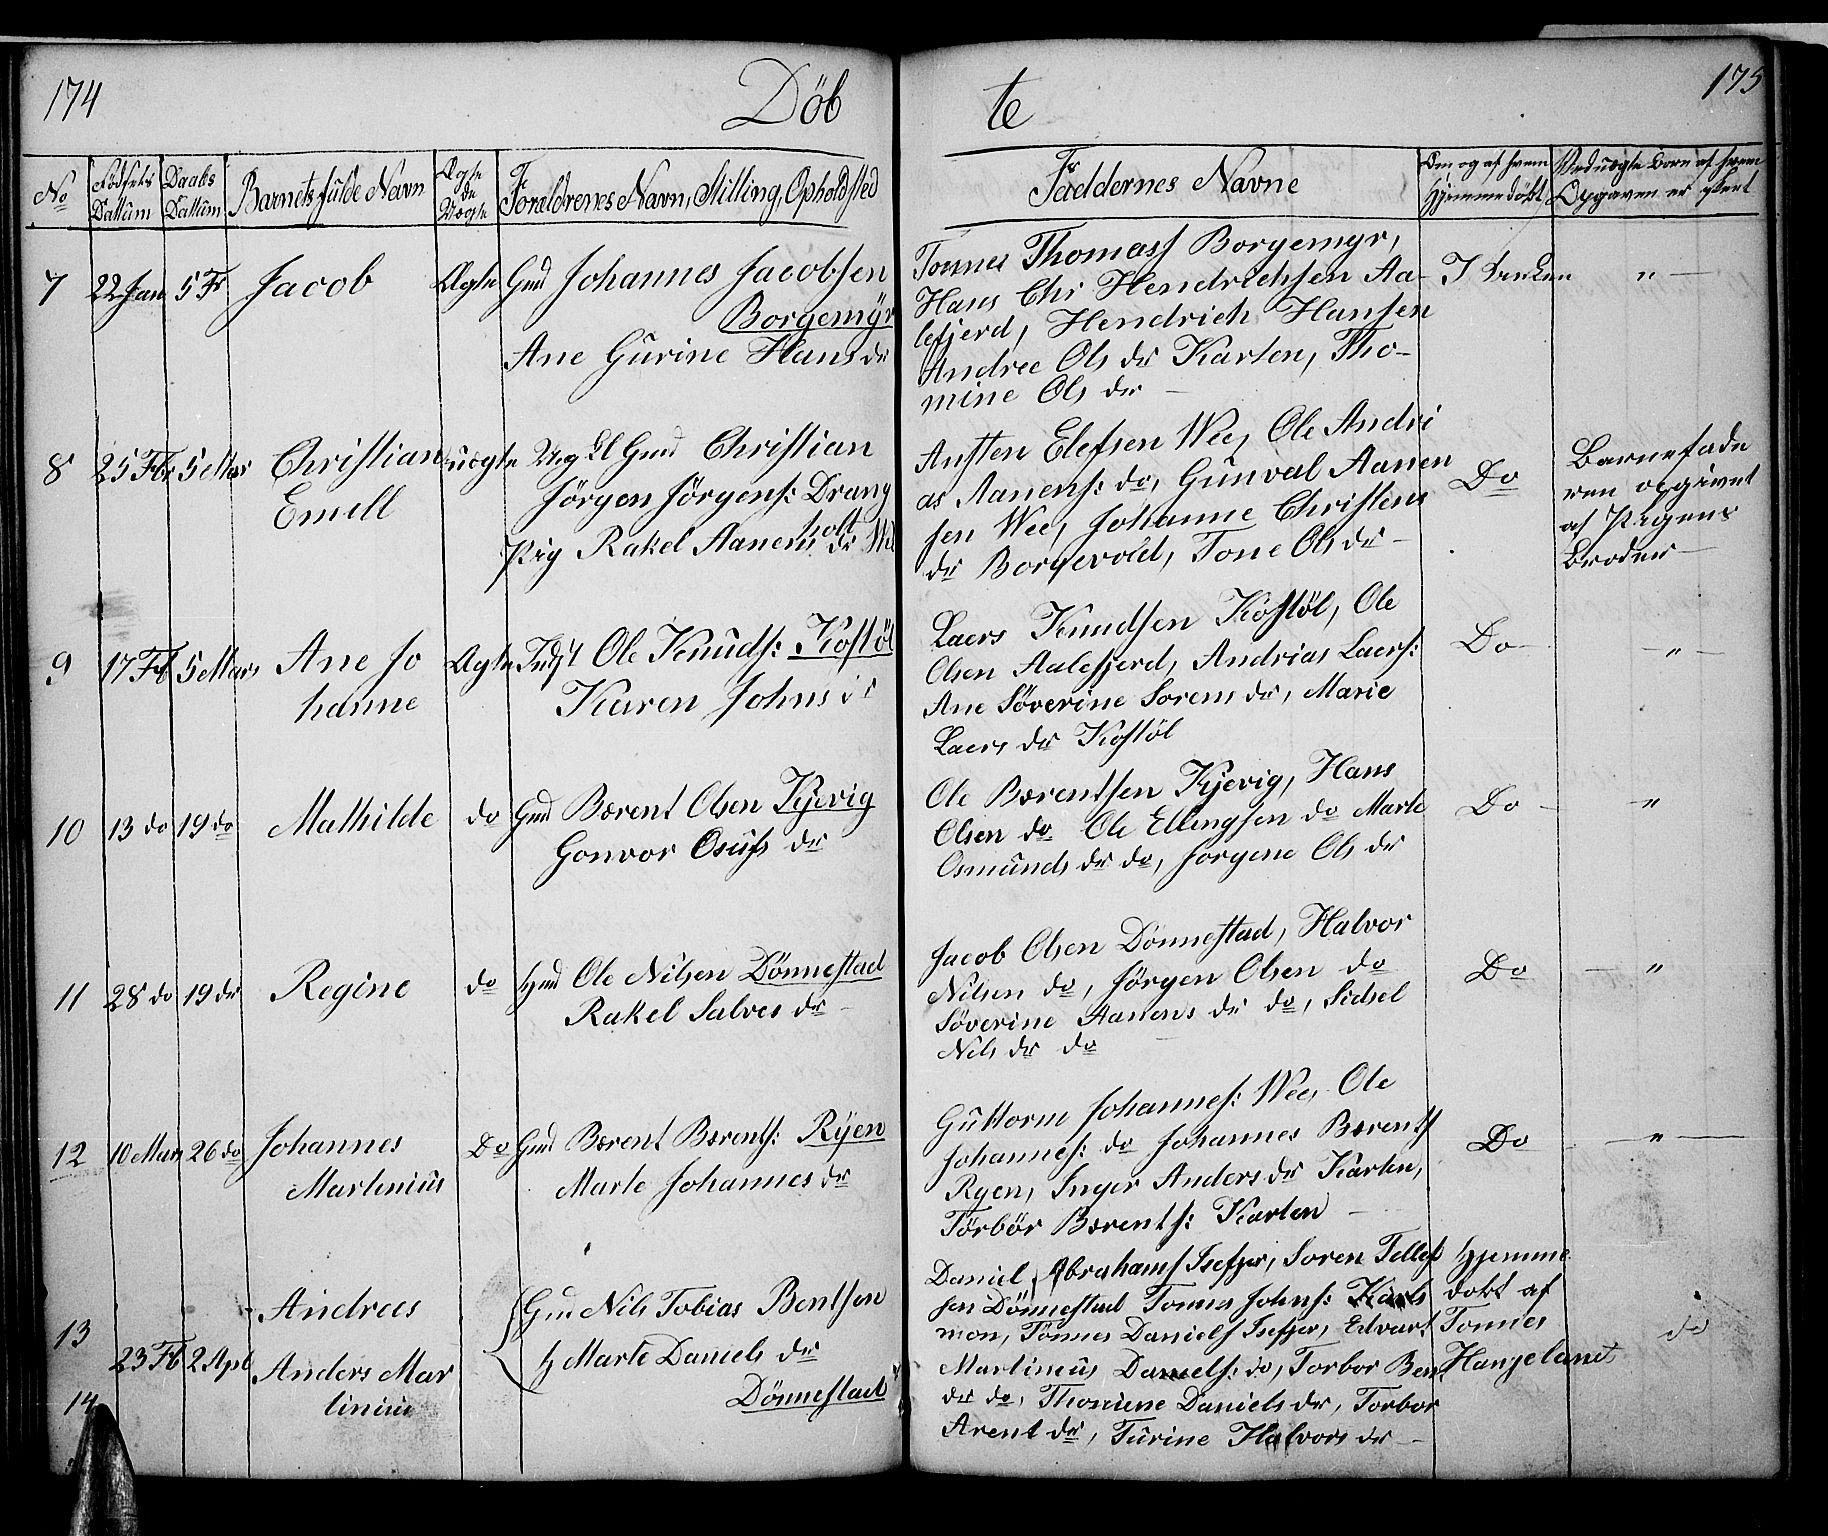 174
Döb
te
175
No
Födsels Dattum
Daabs Dattum
Barnets fulde Navn
Ægte do Uægte
Forældrenes Navn, Stilling, Opholdsted
Faddernes Navne
Om og af hvem Hjemmedöbt
Ved uægte Børn af hvem Opgaven er skeet
7 22 Jan 5 Fr Jacob Ægte Gmd Johannes Jacobsen
Borgemyr
Ane Gurine Hans dr
Tonnes Thomass Borgemyr,
Hans Chr Hendrichsen Aa-
lefjerd, Hendrich Hansen
Andree Ols dr Karten, Tho-
mine Ols dr —
I Kirken
" —
8 25 Fbr 5 Mar Christian uægte Ung Gmd Christian
Emell Jörgen Jörgens: Drang
holt
Pig Rakel Aanens dr We
Austen Elefsen Wee, Ole Andri
as Aanens: do, Gunval Aanen
sen Wee, Johanne Christens
dr Borgevold, Tone Ols dr —
Do
Barnefade
ren opgivet
af Pigens
Broder —
9 17 Fb 5 Mars Ane Jo Ægte Indst Ole Knuds: Kostöl
hanne Karen Johns dr
Laers Knudsen Kostöl, Ole
Olsen Aalefjerd, Andrias Laers:
Ane Söverine Sorens dr, Marie
Laers dr Kostöl
Do
— " —
10 13 do 19 do Mathilde do Gmd Bærent Olsen Kjevig
Gonvor Osufs dr
Ole Bærentsen Kjevig, Hans
Olsen do Ole Ellingsen do Marte
Osmunds dr do, Jorgene Ols dr
Do —
"
11 28 do 19 do Regine do Gmd Ole Nilsen Dönnestad
Rakel Salves dr —
Jacob Olsen Dönnestad, Halvor
Nilsen do, Jörgen Olsen do
Söverine Aanens dr do, Sidsel
Nils dr do
Do
— "
12 10 Mars 26 do Johannes Do Gmd Bærent Bærents: Ryen
Martinius Marte Johannes dr
Guttorm Johannes: Wee, Ole
Johannes: do Johannes Bærents
Ryen, Inger Anders dr Karten,
Törbör Bærents: Karten —
Do
— " —
13 Andrees Gmd Nils Tobias Bentsen
23 Fb 2 Apl Anders Mar H Marte Daniels dr
14 tinius Dönnestad
Daniel Abrahams Isefjer, Soren Tellef
sen Dönnestad Tonnes Johns:
mon, Tönnes Daniels Isefjer, Edvart
Martinius Daniels: do, Torbor Ben
dr do, Thomine Daniels dr, Torbor
Arent dr, Turine Halvors dr —
Hjemme
dobt af
Tonnes
Haugeland
do